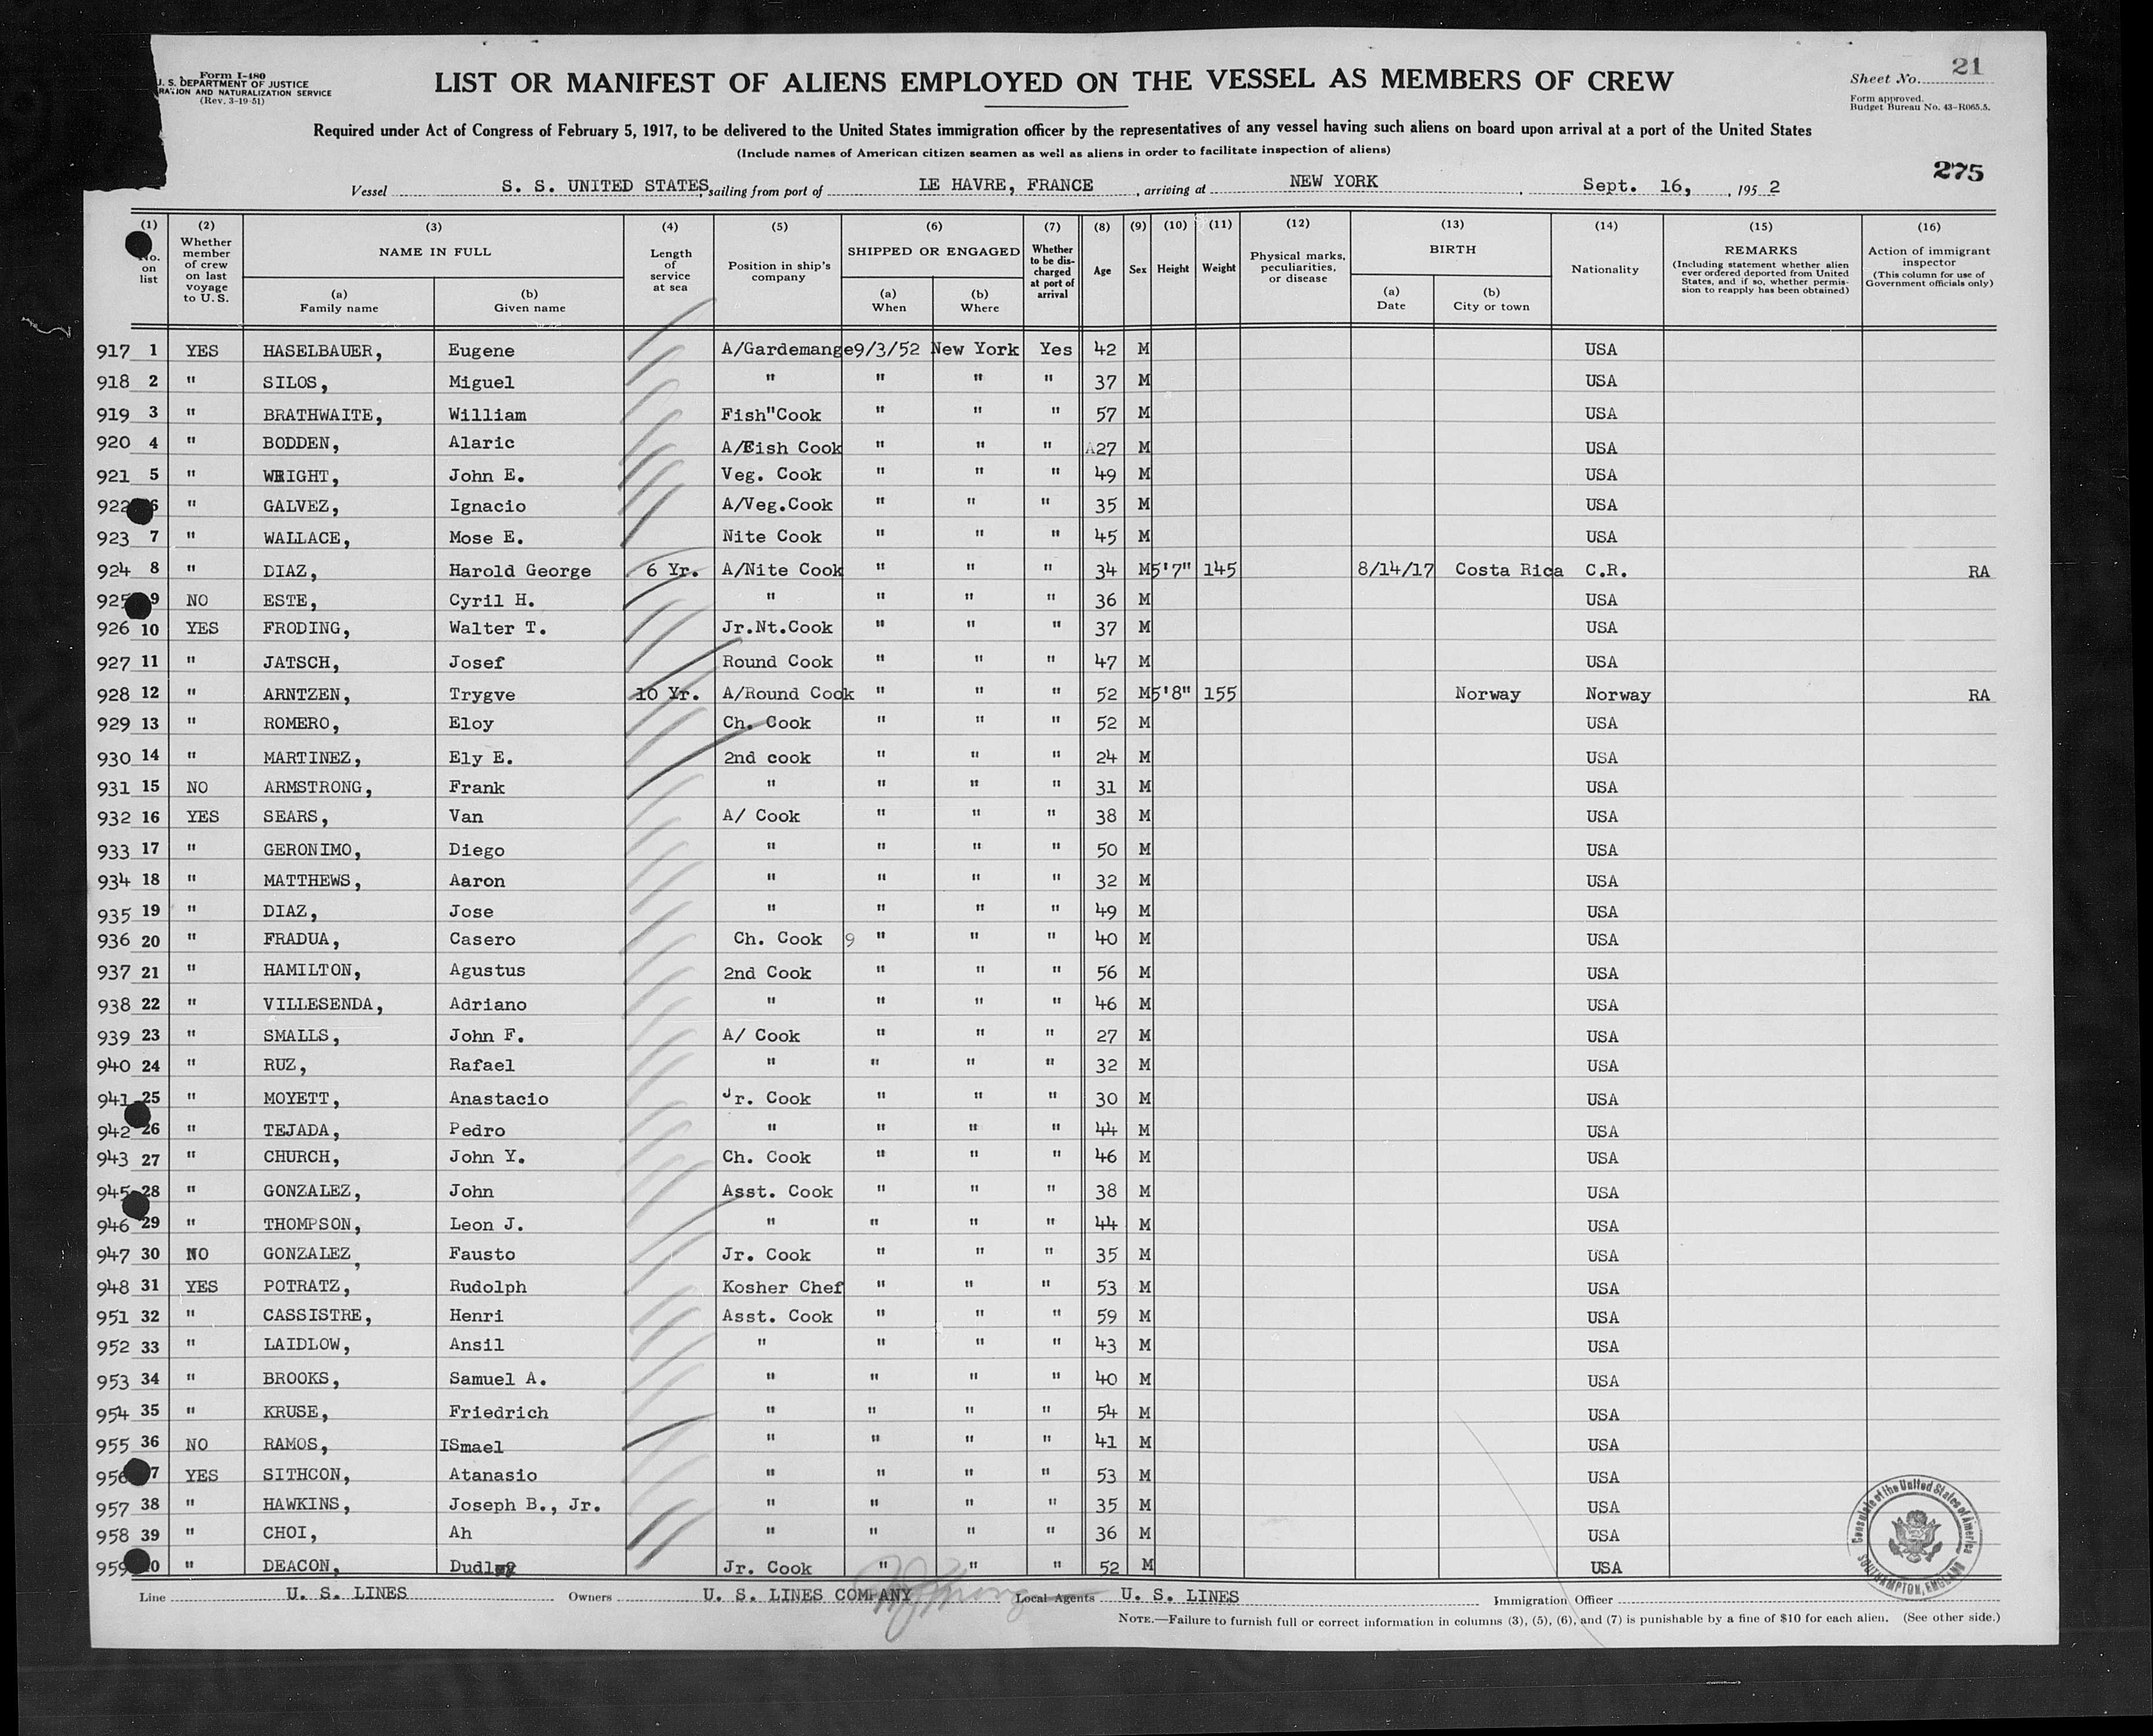 Form I-480
U. S. DEPARTMENT OF JUSTICE
RATION AND NATURALIZATION SERVICE
(Rev. 3-19-51)
LIST OR MANIFEST OF ALIENS EMPLOYED ON THE VESSEL AS MEMBERS OF CREW
Sheet No. 21
Form approved.
Budget Bureau No. 43-R065.5.
Required under Act of Congress of February 5, 1917, to be delivered to the United States immigration officer by the representatives of any vessel having such aliens on board upon arrival at a port of the United States
(Include names of American citizen seamen as well as aliens in order to facilitate inspection of aliens)
275
Vessel S. S. UNITED STATES, sailing from port of LE HAVRE, FRANCE, arriving at NEW YORK, Sept. 16, , 1952
(1) No. on list (2) Whether member of crew on last voyage to U. S. (3) NAME IN FULL (a) Family name (b) Given name (4) Length of service at sea (5) Position in ship's company (6) SHIPPED OR ENGAGED (a) When (b) Where (7) Whether to be discharged at port of arrival (8) Age (9) Sex (10) Height (11) Weight (12) Physical marks, peculiarities, or disease (13) BIRTH (a) Date (b) City or town (14) Nationality (15) REMARKS (Including statement whether alien ever ordered deported from United States, and if so, whether permission to reapply has been obtained) (16) Action of immigrant inspector (This column for use of Government officials only)
917 1 YES HASELBAUER, Eugene A/Gardemange 9/3/52 New York Yes 42 M USA
918 2 " SILOS, Miguel " " " " 37 M USA
919 3 " BRATHWAITE, William Fish"Cook " " " 57 M USA
920 4 " BODDEN, Alaric A/Fish Cook " " " 27 M USA
921 5 " WRIGHT, John E. Veg. Cook " " " 49 M USA
922 6 " GALVEZ, Ignacio A/Veg.Cook " " " 35 M USA
923 7 " WALLACE, Mose E. Nite Cook " " " 45 M USA
924 8 " DIAZ, Harold George 6 Yr. A/Nite Cook " " " 34 M 5'7" 145 8/14/17 Costa Rica C.R. RA
925 9 NO ESTE, Cyril H. " " " " 36 M USA
926 10 YES FRODING, Walter T. Jr.Nt.Cook " " " 37 M USA
927 11 " JATSCH, Josef Round Cook " " " 47 M USA
928 12 " ARNTZEN, Trygve 10 Yr. A/Round Cook " " " 52 M 5'8" 155 Norway Norway RA
929 13 " ROMERO, Eloy Ch. Cook " " " 52 M USA
930 14 " MARTINEZ, Ely E. 2nd cook " " " 24 M USA
931 15 NO ARMSTRONG, Frank " " " " 31 M USA
932 16 YES SEARS, Van A/ Cook " " " 38 M USA
933 17 " GERONIMO, Diego " " " " 50 M USA
934 18 " MATTHEWS, Aaron " " " " 32 M USA
935 19 " DIAZ, Jose " " " " 49 M USA
936 20 " FRADUA, Casero Ch. Cook 9 " " " 40 M USA
937 21 " HAMILTON, Agustus 2nd Cook " " " 56 M USA
938 22 " VILLESENDA, Adriano " " " " 46 M USA
939 23 " SMALLS, John F. A/ Cook " " " 27 M USA
940 24 " RUZ, Rafael " " " " 32 M USA
941 25 " MOYETT, Anastacio Jr. Cook " " " 30 M USA
942 26 " TEJADA, Pedro " " " " 44 M USA
943 27 " CHURCH, John Y. Ch. Cook " " " 46 M USA
945 28 " GONZALEZ, John Asst. Cook " " " 38 M USA
946 29 " THOMPSON, Leon J. " " " " 44 M USA
947 30 NO GONZALEZ, Fausto Jr. Cook " " " 35 M USA
948 31 YES POTRATZ, Rudolph Kosher Chef " " " 53 M USA
951 32 " CASSISTRE, Henri Asst. Cook " " " 59 M USA
952 33 " LAIDLOW, Ansil " " " " 43 M USA
953 34 " BROOKS, Samuel A. " " " " 40 M USA
954 35 " KRUSE, Friedrich " " " " 54 M USA
955 36 NO RAMOS, ISmael " " " " 41 M USA
956 7 YES SITHCON, Atanasio " " " " 53 M USA
957 38 " HAWKINS, Joseph B., Jr. " " " " 35 M USA
958 39 " CHOI, Ah " " " " 36 M USA
959 0 " DEACON, Dudley Jr. Cook " " " 52 M USA
Consulate of the United States of America
SOUTHAMPTON, ENGLAND
Line U. S. LINES Owners U. S. LINES COMPANY Local Agents U. S. LINES Immigration Officer
NOTE.—Failure to furnish full or correct information in columns (3), (5), (6), and (7) is punishable by a fine of $10 for each alien. (See other side.)